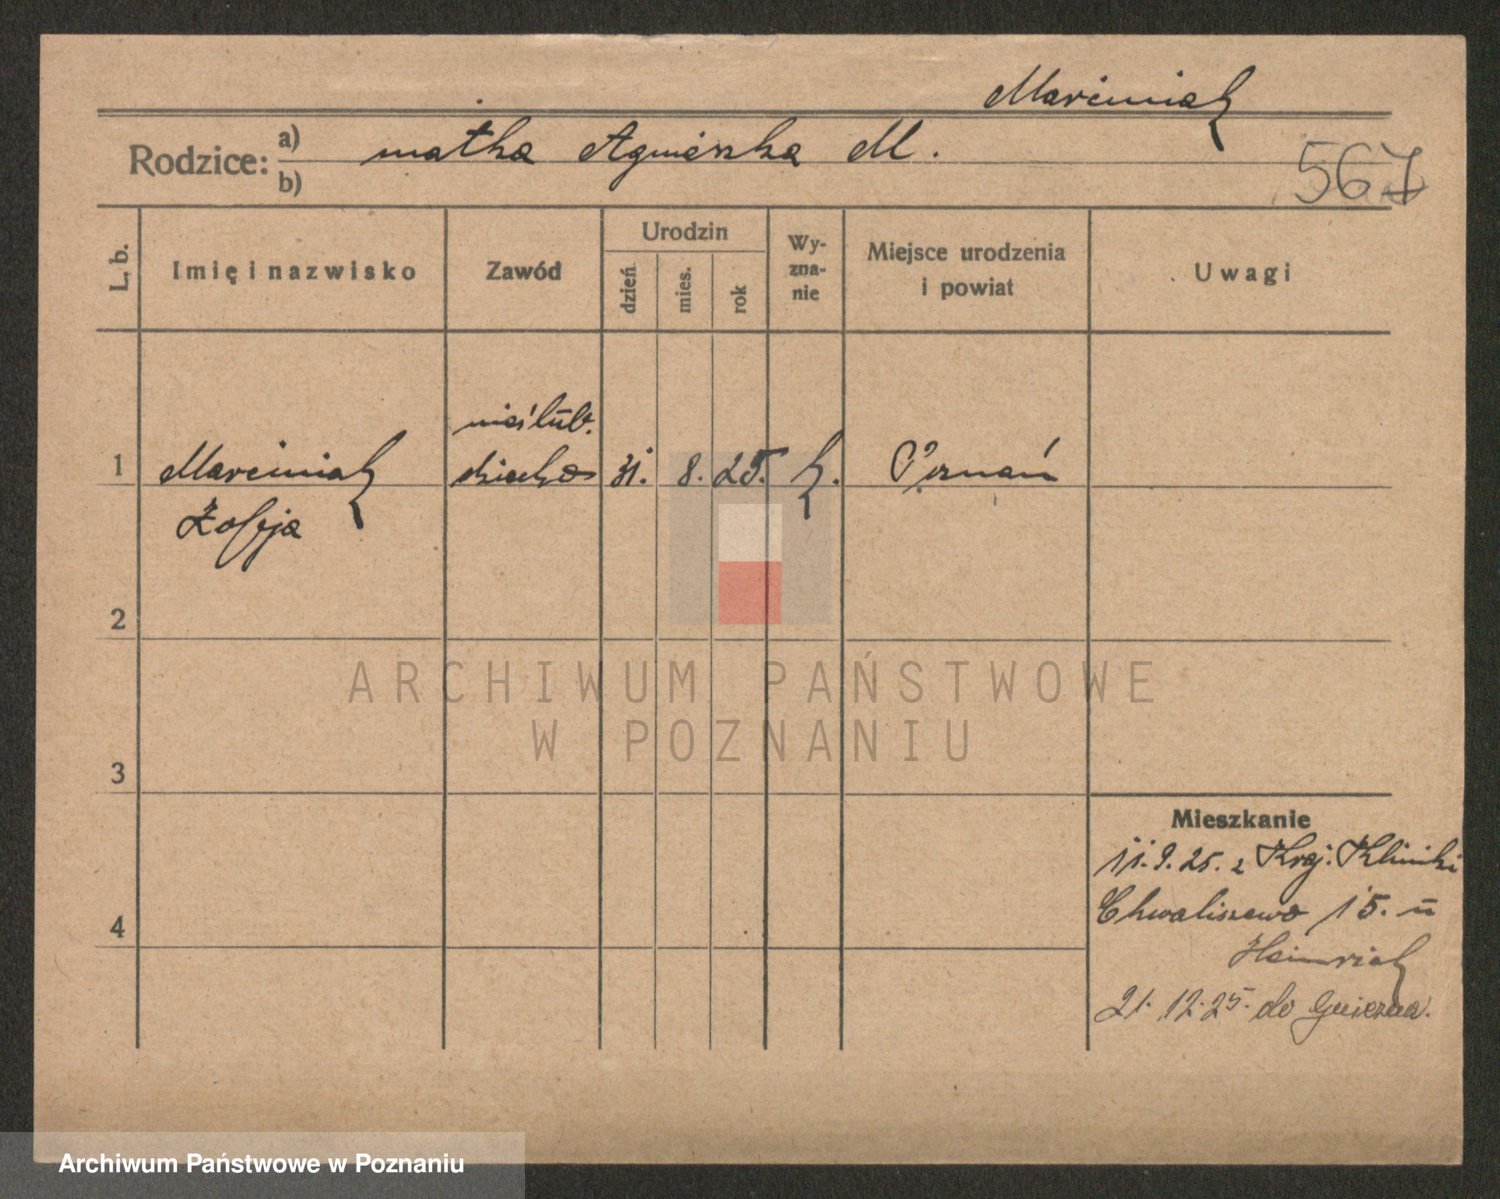 Marciniak
Rodzice: a) matka Agnieszka M.
b)
567
L. b.
Imię i nazwisko
Zawód
Urodzin
dzień
mies.
rok
Wy-
zna-
nie
Miejsce urodzenia
i powiat
Uwagi
nieślub.
1 Marciniak dziecko 31. 8. 25. k. Poznań
Zofja
2
3
4
Mieszkanie
11.9.25. z Kraj. Kliniki
Chwaliszewo 15. u
21.12.25. do Gniezna.
ARCHIWUM PAŃSTWOWE
W POZNANIU
Archiwum Państwowe w Poznaniu